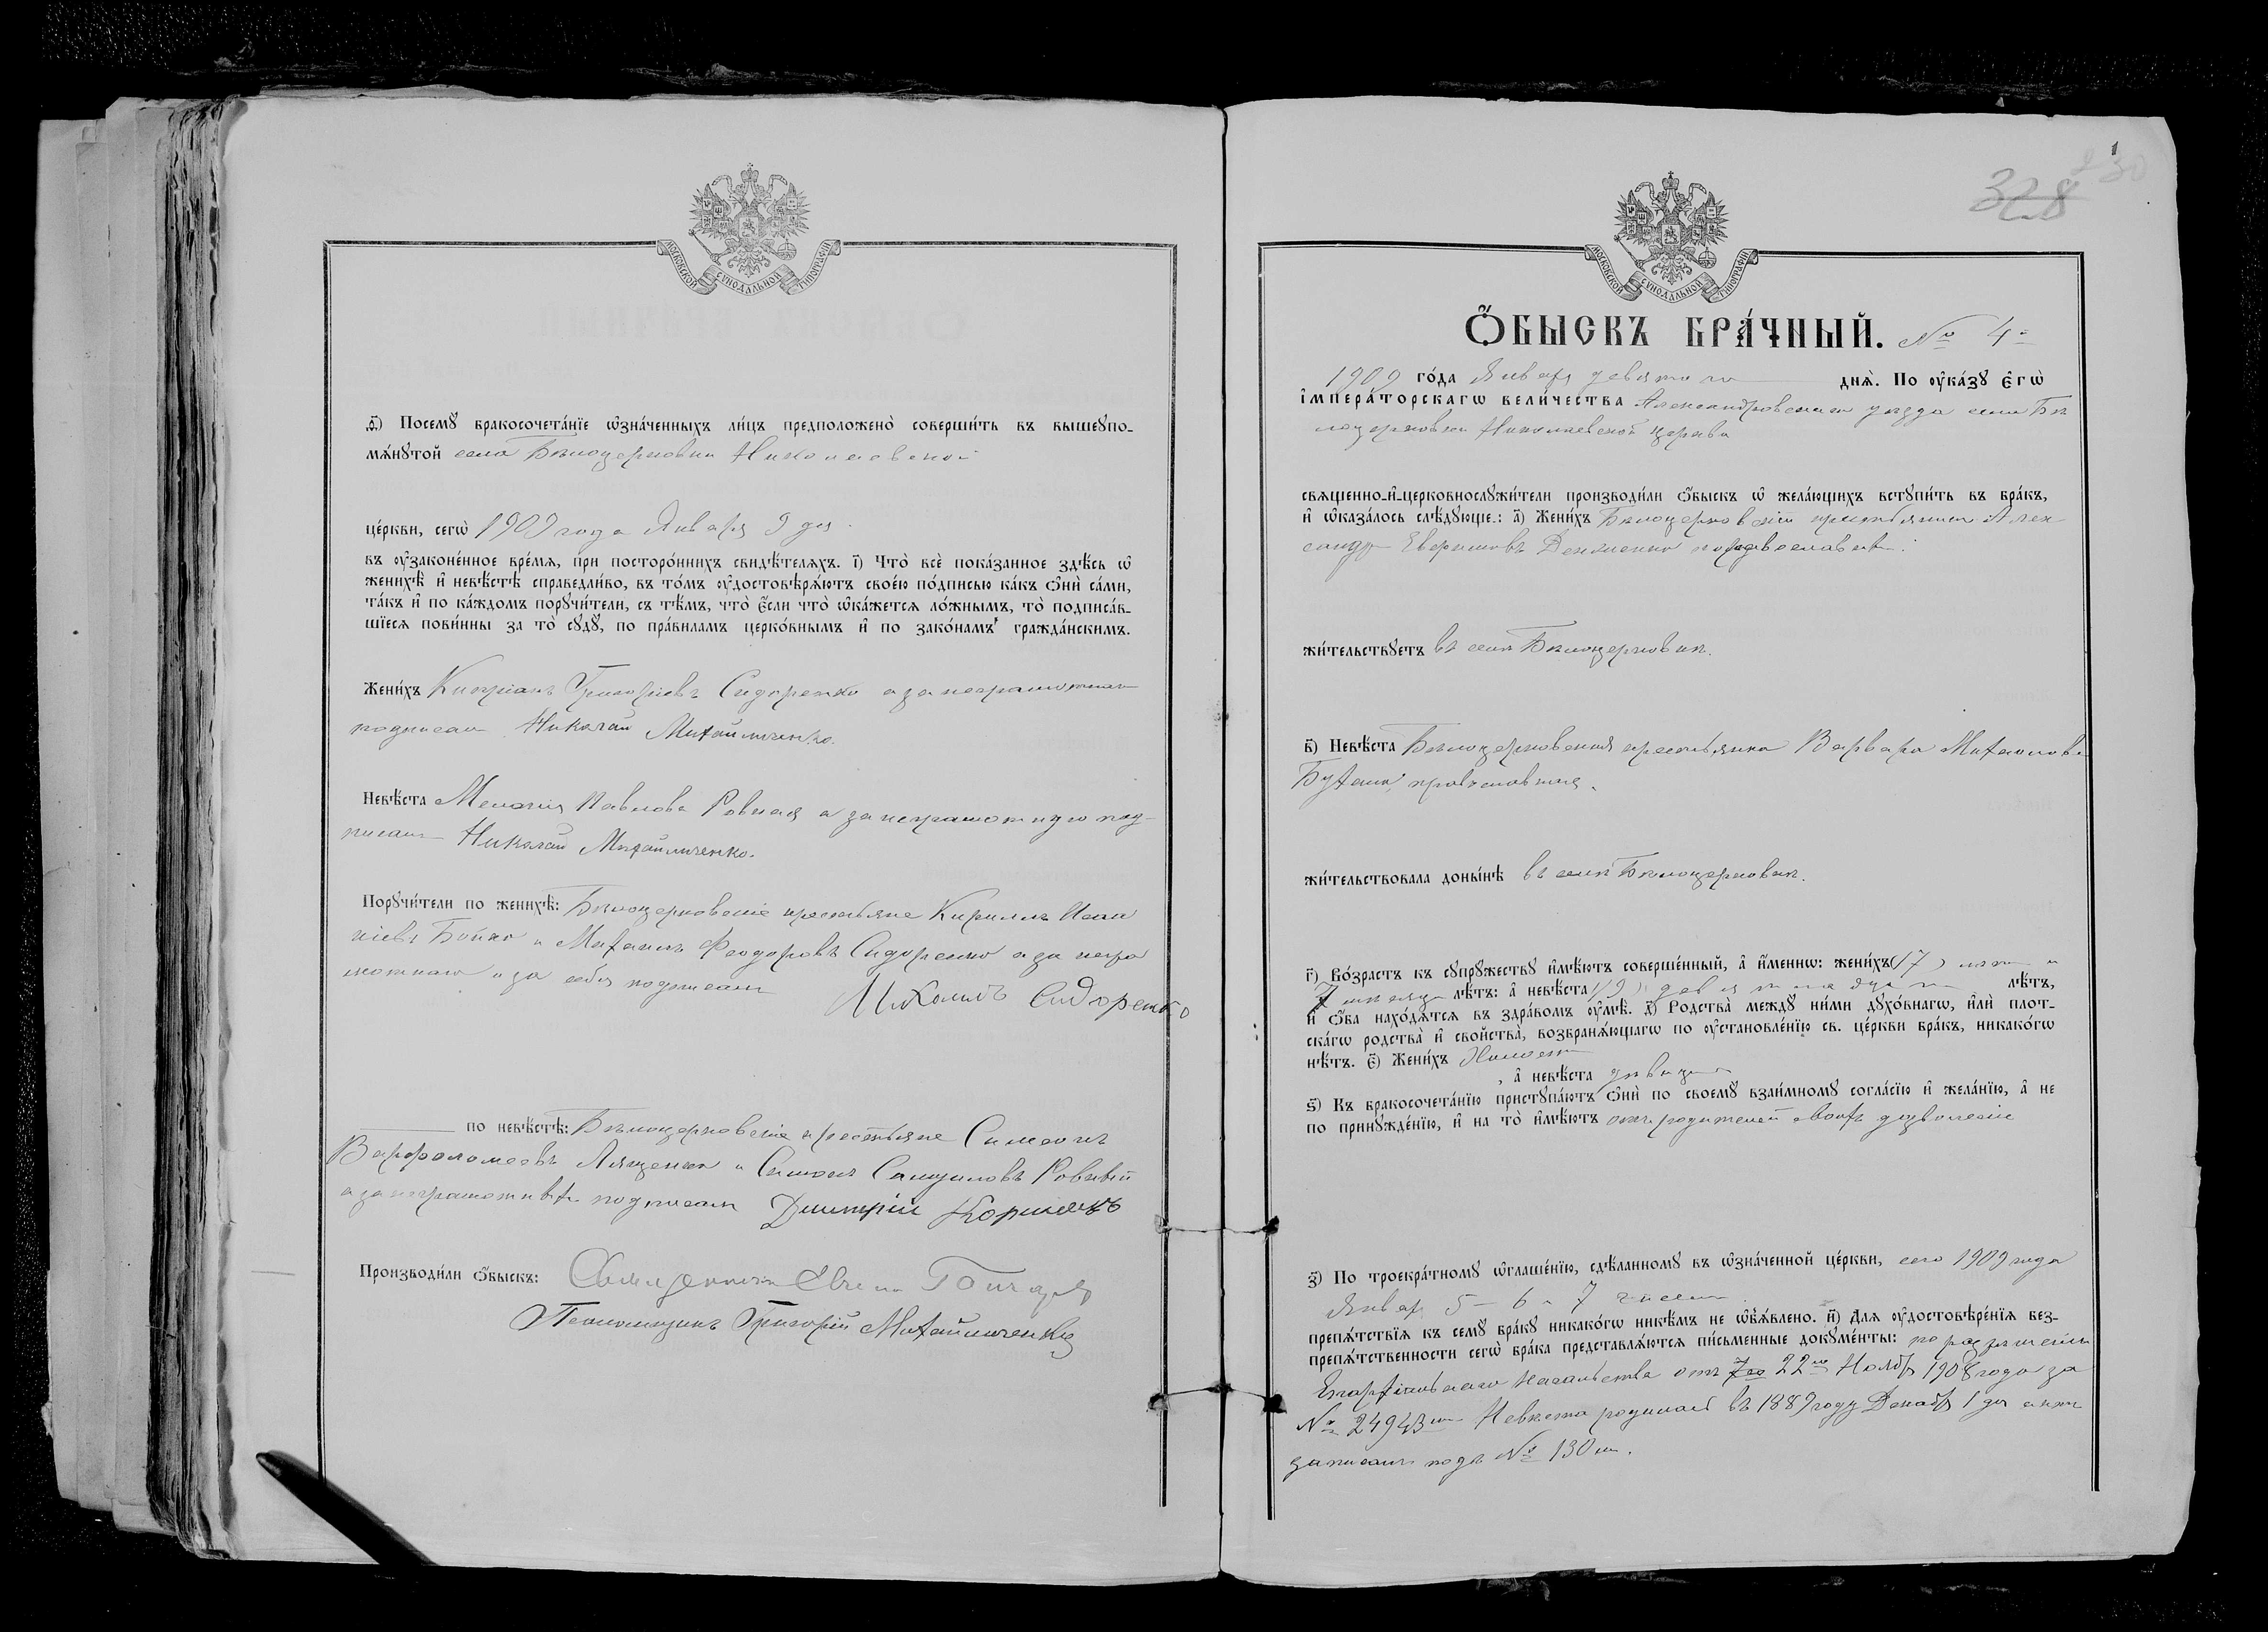 МОСКОВСКОЙ СУНОДАЛЬНОЙ ТИПОГРАФІИ
ѳ҃) Посемꙋ̀ бракосочета́нїе ѡ҆зна́ченныхъ ли́цъ предположено̀ соверши́ть въ вышеꙋпо-
мѧ́нꙋтой села Бѣлоцерковки Николаевской
це́ркви, сегѡ̀ 1909 года Января 9 дня
въ ᲂу҆законе́нное вре́мѧ, при посторо́ннихъ свидѣ́телѧхъ. і҃) Что̀ всѐ пока́занное здѣ́сь ѡ҆
женихѣ̀ и҆ невѣ́стѣ справедли́во, въ то́мъ ᲂу҆достовѣрѧ́ютъ свое́ю по́дписью ка́къ ѻ҆нѝ са́ми,
та́къ и҆ по ка́ждомъ порꙋчи́тели, съ тѣ́мъ, что̀ є҆́сли что̀ ѡ҆ка́жетсѧ ло́жнымъ, то̀ подписа́в-
шїесѧ пови́нны за то̀ сꙋдꙋ̀, по пра́виламъ церко́внымъ и҆ по зако́намъ гражда́нскимъ.
Жени́хъ Кипріанъ Григоріевъ Сидоренко а за неграмотнаго
подписалъ Николай Михайличенко.
Невѣ́ста Меланія Павлова Ровная а за неграмотную под-
писалъ Николай Михайличенко.
Порꙋчи́тели по женихѣ̀: Бѣлоцерковскіе крестьяне Кириллъ Исаа
кіевъ Бойко и Михаилъ Феодоровъ Сидоренко а за негра
мотнаго и за себя подписалъ Михаилъ Сидоренко
по невѣ́стѣ: Бѣлоцерковскіе крестьяне Симеонъ
Варфоломеевъ Лященко и Самуилъ Самуиловъ Ровный
а за неграмотныхъ подписалъ Дмитрій
Производи́ли ѻ҆́быскъ: Священникъ
Псаломщикъ Григорій Михайличенко
328
230
МОСКОВСКОЙ СУНОДАЛЬНОЙ ТИПОГРАФІИ
Ѻ҆́БЫСКЪ БРА́ЧНЫЙ. № 4й
1909 го́да Января девятаго днѧ̀. По ᲂу҆ка́зꙋ є҆гѡ̀
і҆мпера́торскагѡ вели́чества Александровскаго уѣзда села Бѣ
лоцерковки Николаевской церкви
свѧщенно-и҆-церковнослꙋжи́тели производи́ли ѻ҆́быскъ ѡ҆ жела́ющихъ встꙋпи́ть въ бра́къ,
и҆ ѡ҆каза́лось слѣ́дꙋющее: а҃) Жени́хъ Бѣлоцерковскій крестьянинъ Алек
сандръ православный.
жи́тельствꙋетъ въ селѣ Бѣлоцерковкѣ.
в҃) Невѣ́ста Бѣлоцерковская крестьянка Варвара Михаилова
православная.
жи́тельствовала доны́нѣ въ селѣ Бѣлоцерковкѣ.
г҃) Во́зрастъ къ сꙋпрꙋ́жествꙋ и҆мѣ́ютъ соверше́нный, а҆ и҆́меннѡ: жени́хъ (17) лѣтъ и
7 мѣсяцъ лѣ́тъ: а҆ невѣ́ста (19) девятнадцать лѣ́тъ,
и҆ ѻ҆́ба нахо́дѧтсѧ въ здра́вомъ ᲂу҆мѣ̀. д҃) Родства̀ междꙋ̀ ни́ми дꙋхо́внагѡ, и҆лѝ плот-
ска́гѡ родства̀ и҆ свойства̀, возбранѧ́ющагѡ по ᲂу҆становле́нїю св. це́ркви бра́къ, никако́гѡ
нѣ́тъ. є҃) Жени́хъ Холостъ
, а҆ невѣ́ста дѣвица
ѕ҃) Къ бракосочета́нїю пристꙋпа́ютъ ѻ҆нѝ по своемꙋ̀ взаи́мномꙋ согла́сїю и҆ жела́нїю, а҆ не
по принꙋжде́нїю, и҆ на то̀ и҆мѣ́ютъ отъ родителей своихъ дозволеніе
з҃) По троекра́тномꙋ ѡ҆глаше́нїю, сдѣ́ланномꙋ въ ѡ҆зна́ченной це́ркви, сего 1909 года
Января 5 – 6 и 7 чиселъ
препѧ́тствїѧ къ семꙋ̀ бра́кꙋ никако́гѡ никѣ́мъ не ѡ҆б̾ѧ́влено. и҃) Для ᲂу҆достовѣре́нїѧ без-
препѧ́тственности сегѡ̀ бра́ка представлѧ́ютсѧ пи́сьменные докꙋме́нты: по разрѣшенію
Епархіальнаго Начальства отъ 22го Ноября 1908 года за
№ 24943мъ Невѣста родилась въ 1889 году Декабря 1 дня актъ
записанъ подъ № 130мъ.